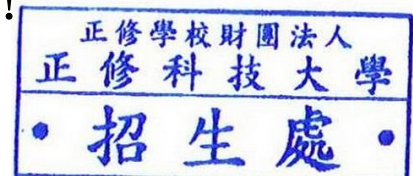 !
正修學校財團法人
正修科技大學
• 招生處 •